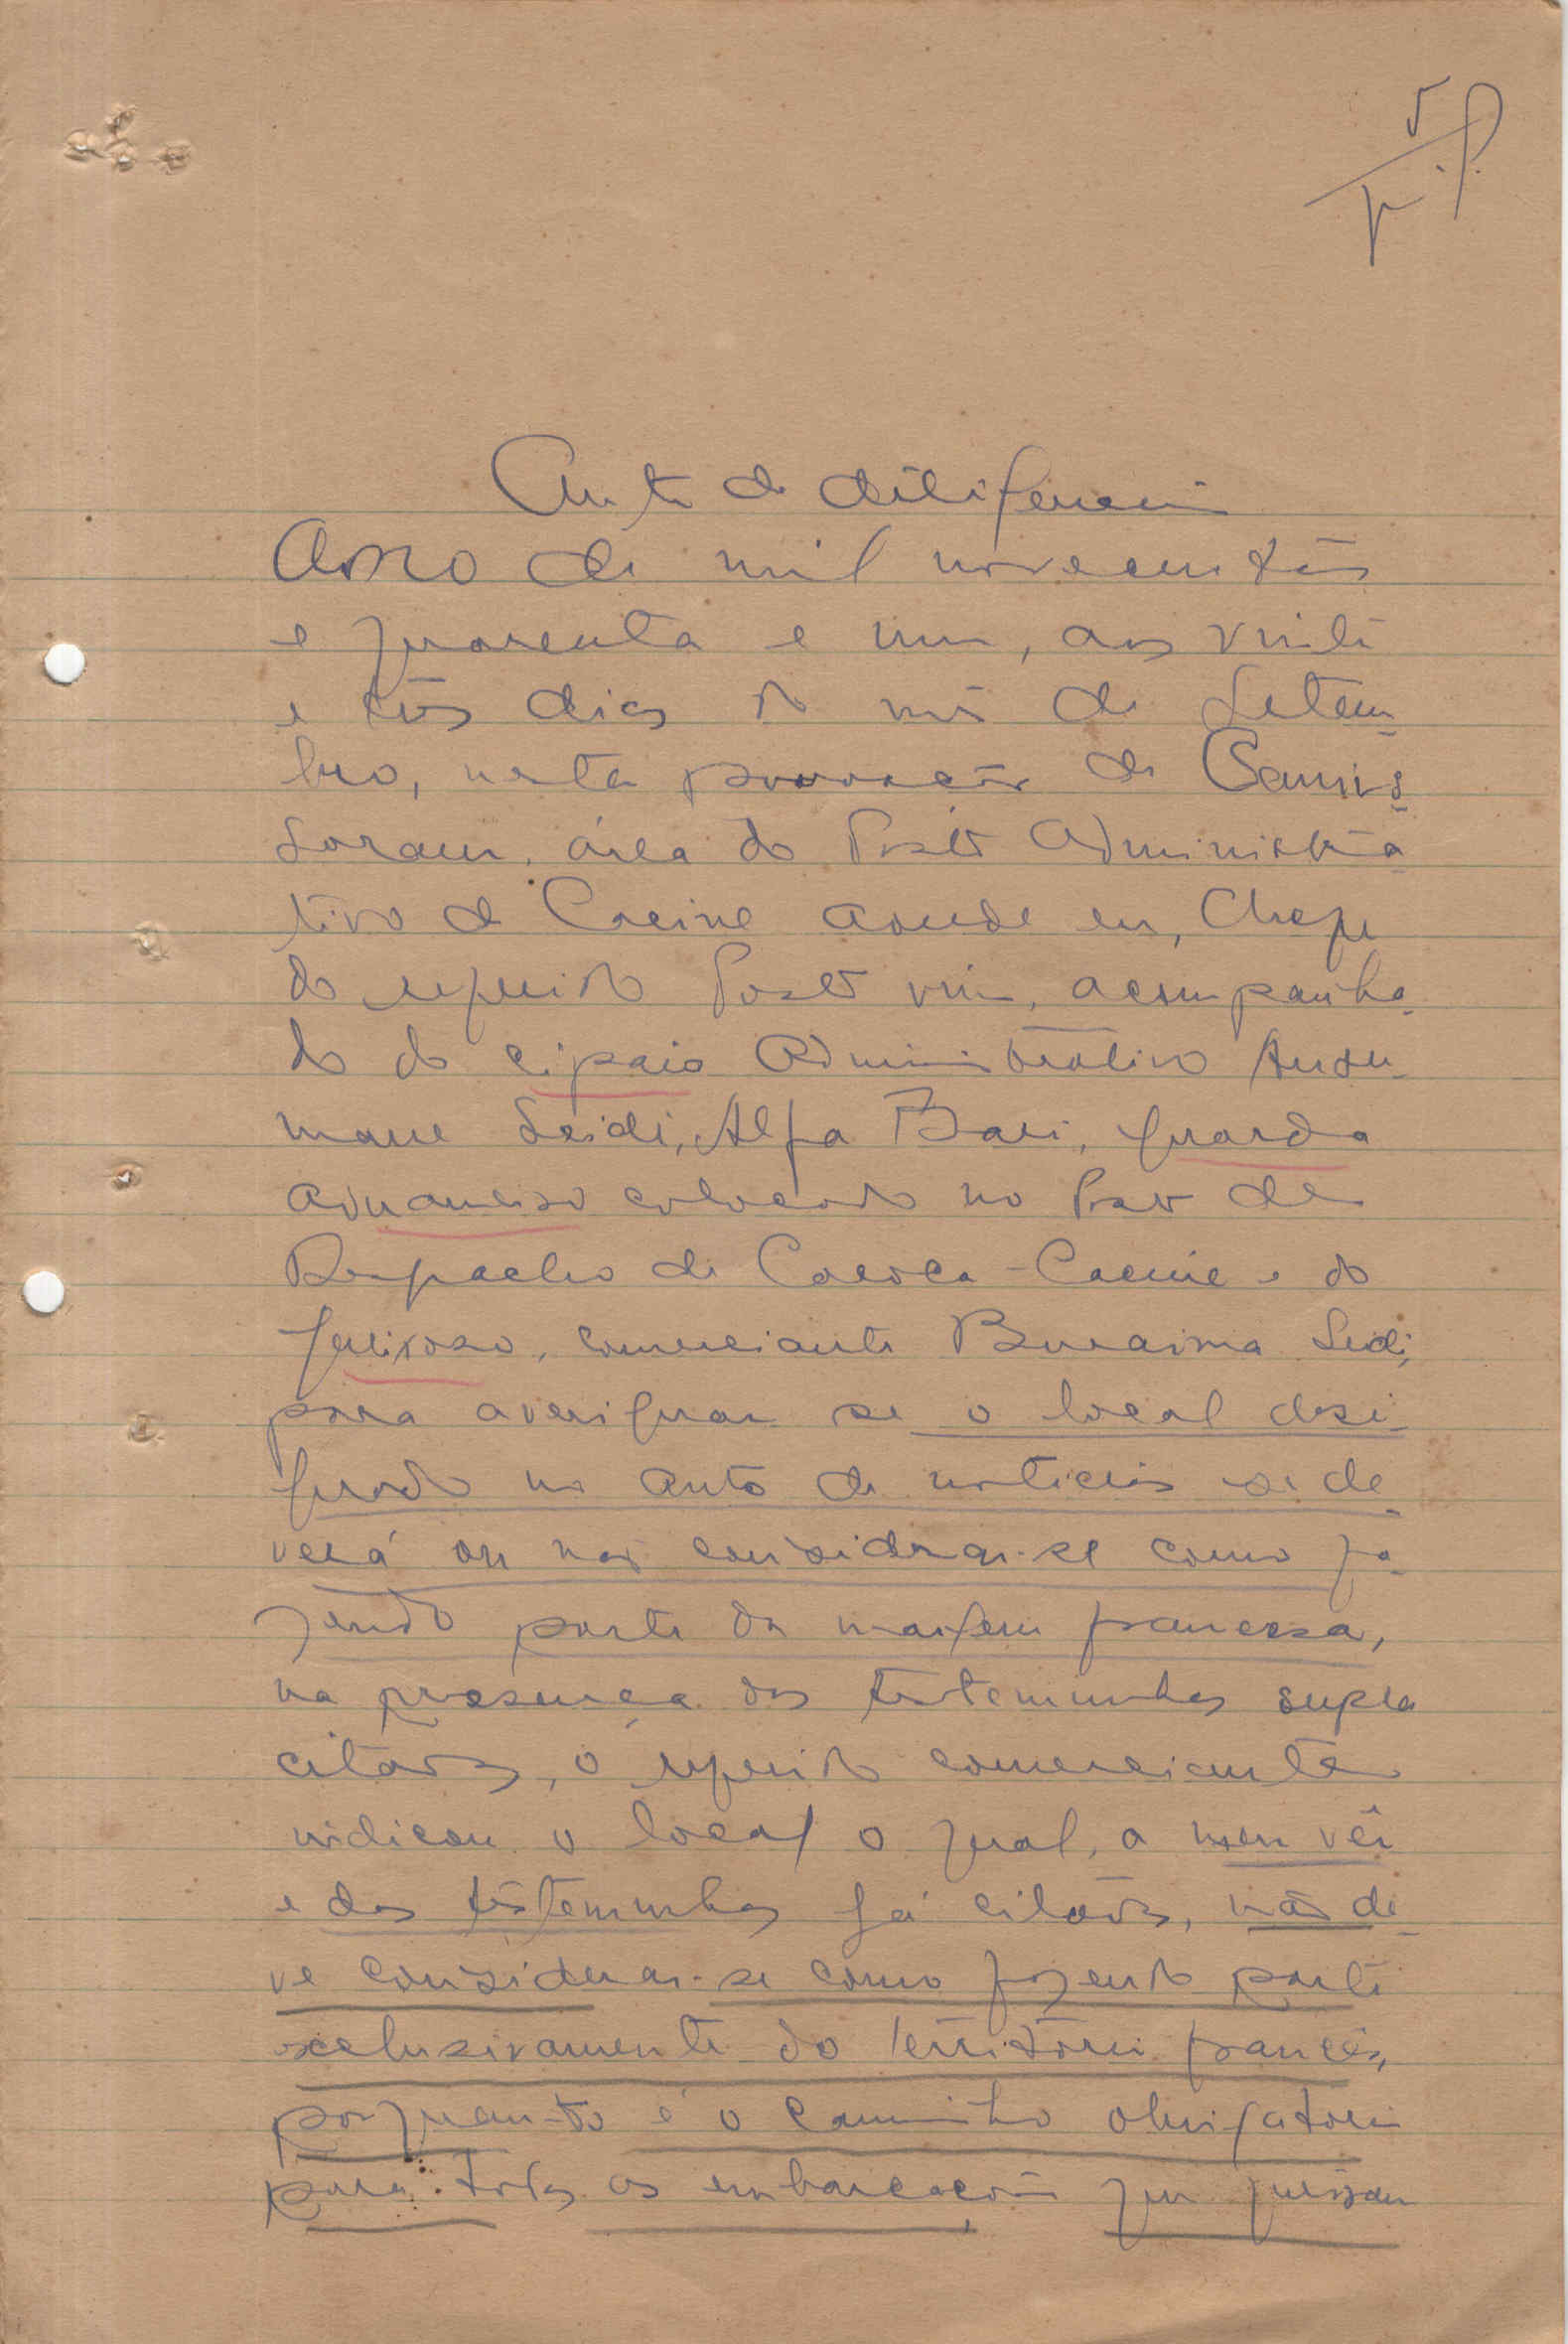 5
Auto de diligencia
Anno de mil novecentos
e quarenta e um, aos vinte
e três dias do mês de Setem-
bro, nesta povoação de
área do Posto Administra-
tivo de Cacine aonde eu, Chefe
do referido Posto vim, acompanha-
do do cipaio Administrativo Andu-
mane Seidi, Alfa Bari, guarda
aduaneiro colocado no Posto de
Despacho de Cacoca-Cacine e do
queixoso, comerciante Buraima Seidi,
para averiguar se o local desi-
gnado no auto de noticias se de-
verá ou não considerar-se como fa-
zendo parte da margem francesa,
na presença das testemunhas supra
citadas, o referido comerciante
indicou o local o qual, a meu vêr
e das testemunhas já citadas, não de-
ve considerar-se como fazendo parte
exclusivamente do território francês,
porquanto é o caminho obrigatório
para todas as embarcações que queiram